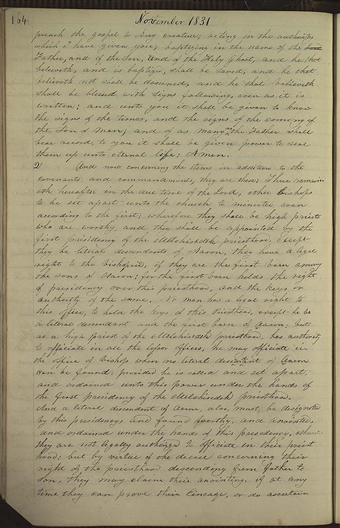 164 November 1831
preach the gospel to every creature, acting in the authority
which I have given you, baptizing in the name of the
Father, and of the Son, and of the Holy Ghost, and he that
believeth, and is baptized, shall be saved, and he that
believeth not shall be damned, and he that believeth
shall be blessed with signs following, even as it is
written; and unto you it shall be given to know
the signs of the times, and the signs of the coming of
the Son of Man; and of as many as the Father shall
bear record, to you it shall be given power to seal
them up unto eternal life: Amen.
2) And now concerning the items in addition to the
covenants and commandments, they are these: There remain-
eth hereafter in the due time of the Lord, other Bishops
to be set apart unto the church to minister even
according to the first; wherefore they shall be high priests
who are worthy, and they shall be appointed by the
first presidency of the Melchisedek priesthood, except
they be literal descendants of Aaron, they have a legal
right to the bishopric, if they are the first born among
the sons of Aaron; for the first born holds the right
of presidency over this priesthood, and the keys or
authority of the same. No man has a legal right to
this office, to hold the keys of this priesthood, except he be
a literal descendant and the first born of Aaron; but
as a high priest of the Melchisedek priesthood, has authority
to officiate in all the lesser offices, he may officiate in
the office of bishop when no literal descendant of Aaron
can be found; provided he is called and set apart,
and ordained unto this power under the hands of
the first presidency of the Melchisedek priesthood.
And a literal descendant of Aaron, also, must be designated
by this presidency, and found worthy, and anointed,
and ordained under the hands of this presidency,
they are not legally authorized to officiate in their priest
hood; but by virtue of the decree concerning their
right of the priesthood descending from father to
son, they may claim their anointing, if at any
time they can prove their lineage, or do ascertain